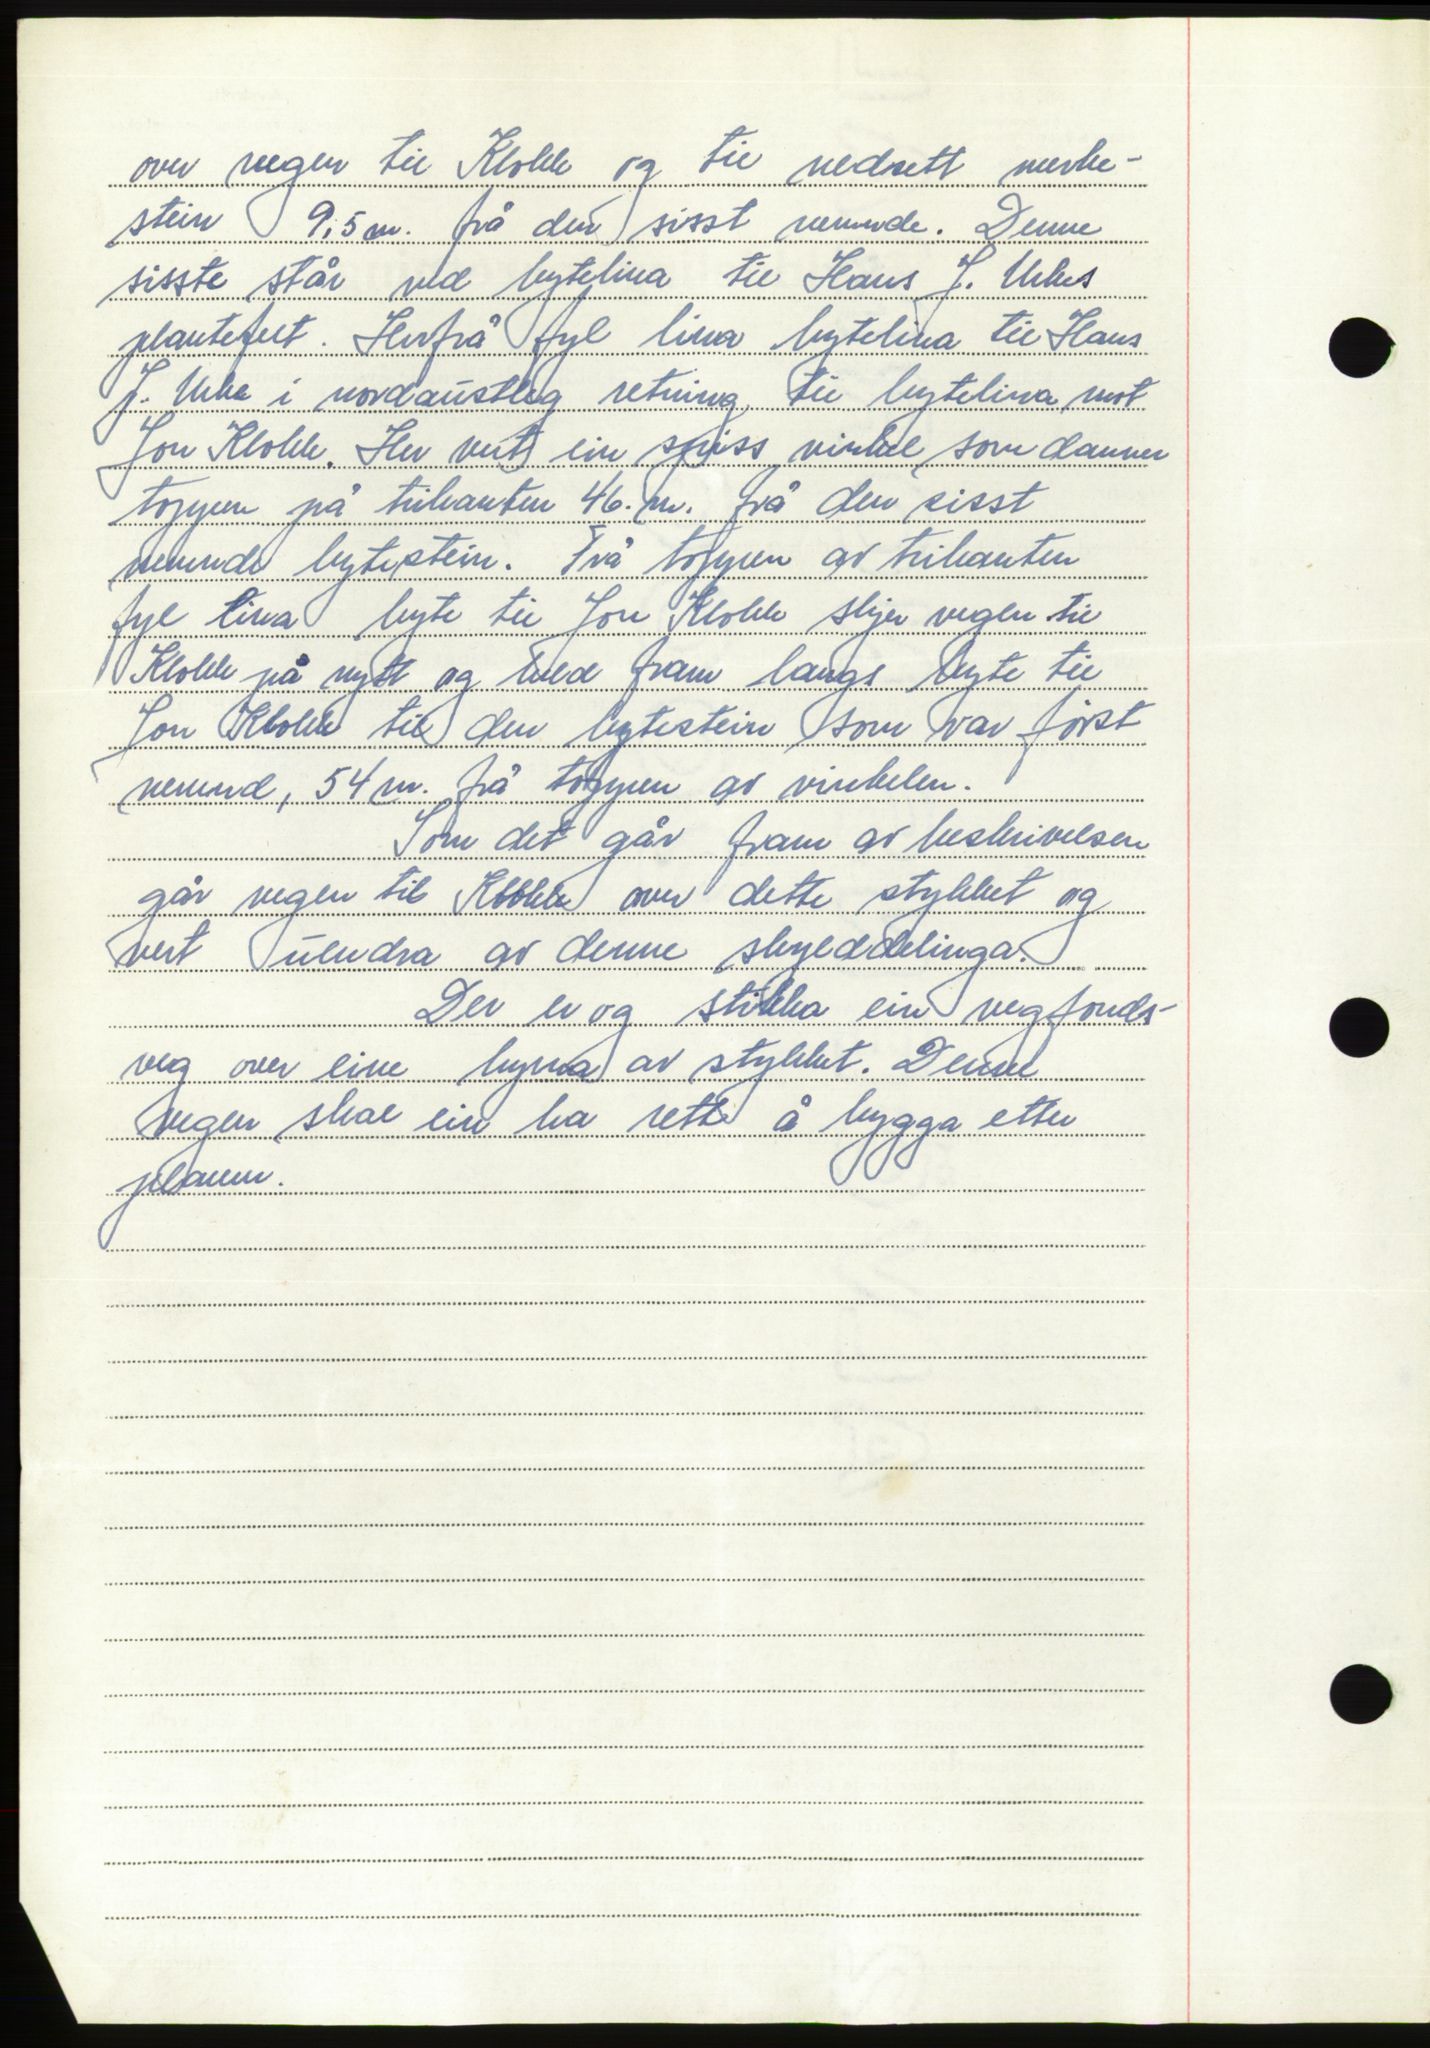 over vegen til Klokk og til nedsett merke-
stein 9,5 m. frå den sisst nemnde. Denne
sisste står ved bytelina til Hans J. Urkes
plantefelt. Herfrå fyl lina bytelina til Hans
J. Urke i nordaustleg retning til bytelina mot
Jon Klokk. Her vert ein spiss vinkel som danner
toppen på trikanten 46. m. frå den sisst
nemnde bytestein. Frå toppen av trikanten
fyl lina byte til Jon Klokk skjer vegen til
Klokk på nytt og held fram langs byte til
Jon Klokk til den bytestein som var först
nemnd, 54 m. frå toppen av vinkelen.
Som det går fram av beskrivelsen
går vegen til Klokk over dette stykket og
vert uendra av denne skylddelinga.
Der er og stikka ein vegfonds-
veg over eine hyrna av stykket. Denne
vegen skal ein ha rett å bygga etter
planen.